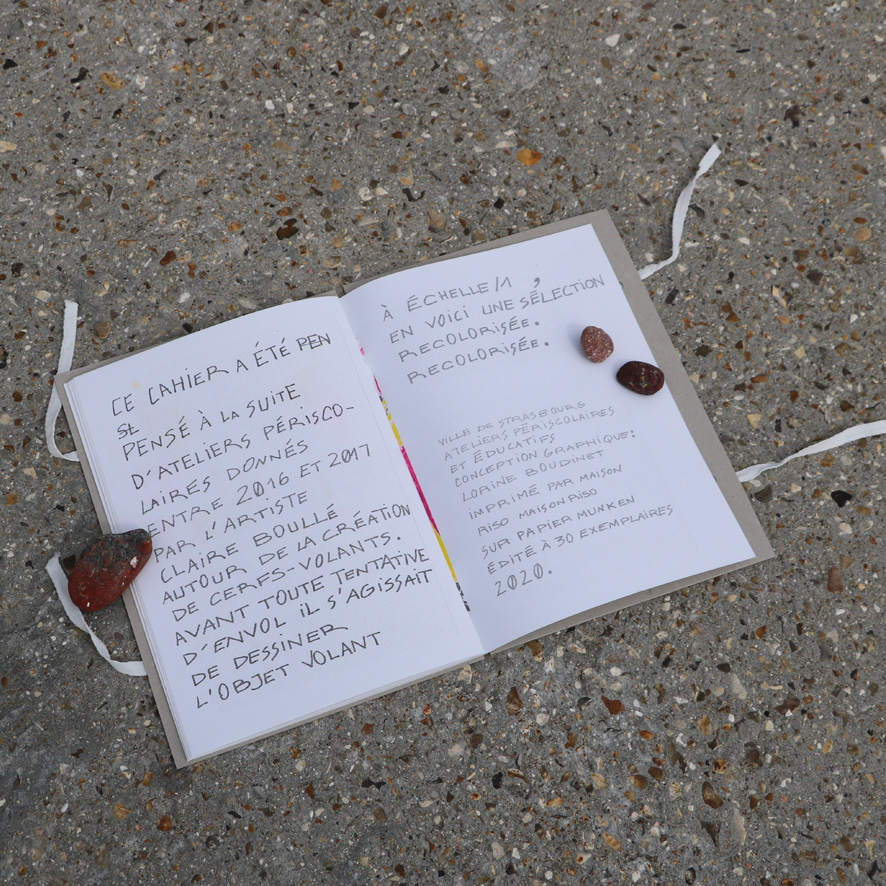 CE CAHIER A ÉTÉ PEN
SÉ
PENSÉ À LA SUITE
D'ATELIERS PÉRISCO-
LAIRES DONNÉS
ENTRE 2016 ET 2017
PAR L'ARTISTE
CLAIRE BOULLÉ
AUTOUR DE LA CRÉATION
DE CERFS-VOLANTS.
AVANT TOUTE TENTATIVE
D'ENVOL IL S'AGISSAIT
DE DESSINER
L'OBJET VOLANT
À ÉCHELLE/1,
EN VOICI UNE SÉLECTION
RECOLORISÉE.
RECOLORISÉE.
VILLE DE STRASBOURG
ATELIERS PÉRISCOLAIRES
ET ÉDUCATIFS
CONCEPTION GRAPHIQUE:
LORINE BOUDINET
IMPRIMÉ PAR MAISON
RISO MAISON RISO
SUR PAPIER MUNKEN
ÉDITÉ À 30 EXEMPLAIRES
2020.